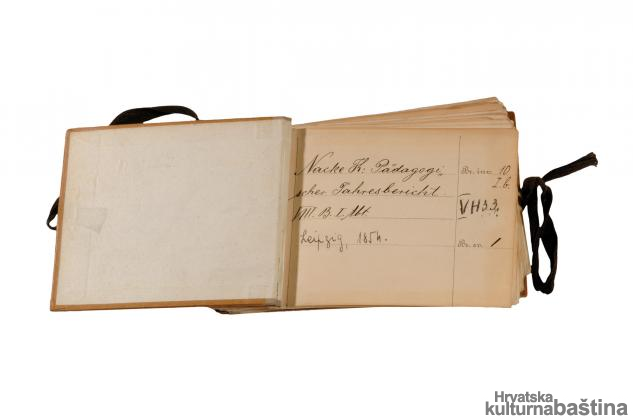 Nacke K: Pädagogi-
scher Jahresbericht
VIII. B. I. Abt
Leipzig, 1854.
Br. inv. 10
I. b.
VH33.
Br. sv. 1
Hrvatska
kulturnabaština